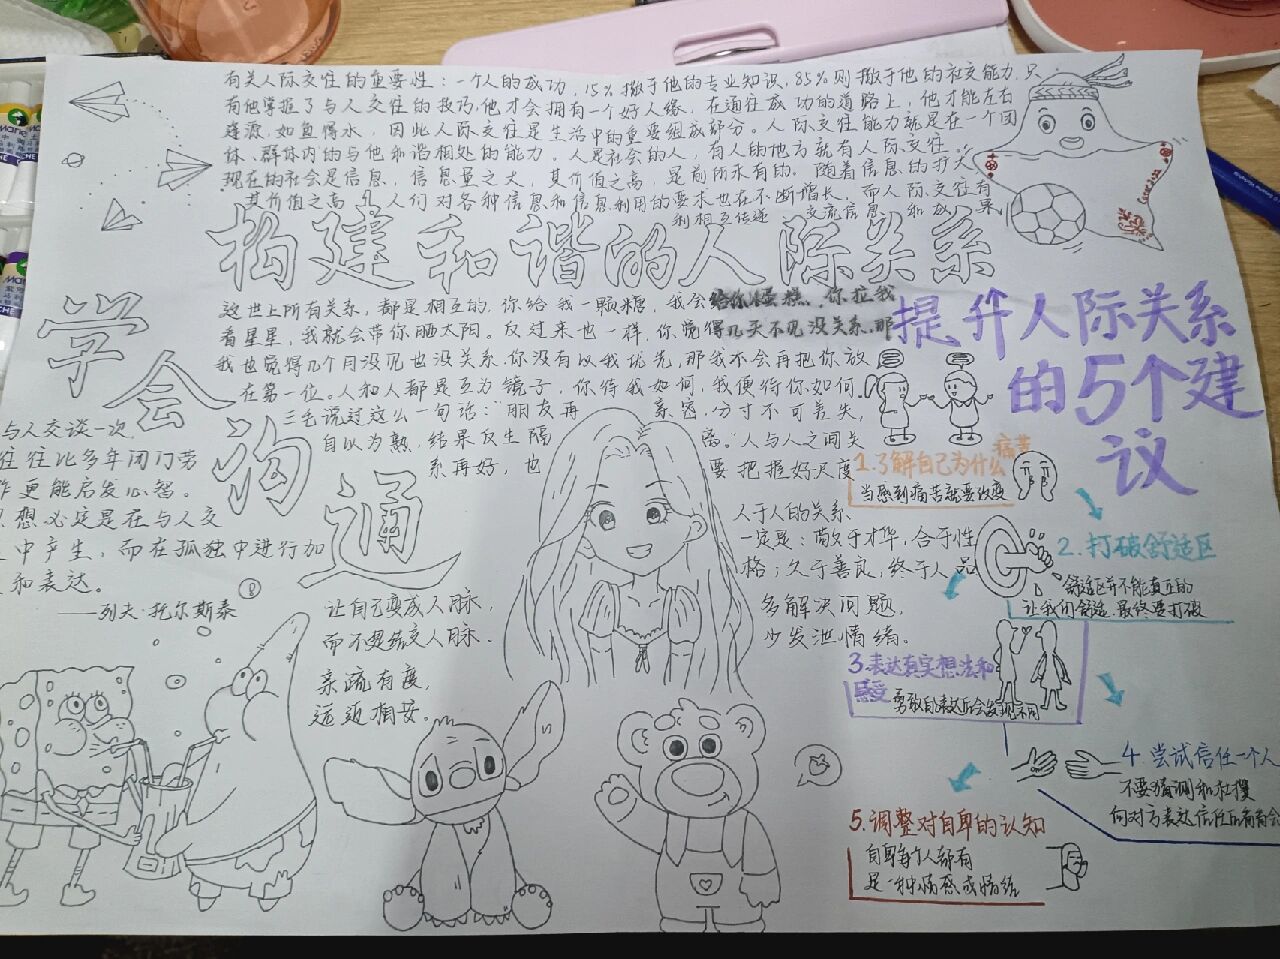 有关人际交往的重要性：一个人的成功，15%撒于他的专业知识，85%则撒于他的社交能力，只
有他掌握了与人交往的技巧，他才会拥有一个好人缘，在通往成功的道路上，他才能左右
逢源，如鱼得水，因此人际交往是生活中的重要组成部分。人际交往能力就是在一个团
体、群体内的与他和谐相处的能力。人是社会的人，有人的地方就有人际交往。
现在的社会是信息，信息量之大，其价值之高，是前所未有的，随着信息的扩大
其价值之高 人们对各种信息和信息利用的要求也在不断增长，而人际交往有
利相互传递 交流信息 和成果
构建和谐的人际关系
学会沟通
这世上所有关系，都是相互的，你给我一颗糖，我会给你 蛋糕，你拉我
看星星，我就会带你晒太阳。反过来也一样，你觉得几天不见没关系，那
我也觉得几个月没见也没关系，你没有以我优先，那我不会再把你放
在第一位。人和人都是互为镜子，你待我如何，我便待你如何。
三毛说过这么一句话：“朋友再 亲密，分寸不可差失，
自以为熟，结果反生隔 离。人与人之间关
系再好，也 要把握好尺度
与人交谈一次，
往往比多年闭门劳
作更能启发心智。
思想必定是在与人交
中产生，而在孤独中进行加
和表达。
——列夫·托尔斯泰
让自己变成人脉，
而不是结交人脉。
亲疏有度，
远近相安。
人于人的关系
一定是：始于才华，合于性
格；久于善良，终于人品
多解决问题，
少发泄情绪。
提升人际关系
的5个建
议
1.了解自己为什么痛苦
当感到痛苦就要改变
2.打破舒适区
舒适区并不能真正的
让我们舒适，最终要打破
3.表达真实想法和
感受
勇敢自我表达后会发现不同
4.尝试信任一个人
不要猜测和杜撰
向对方表达信任后再看会
5.调整对自卑的认知
自卑每个人都有
是一种情感或情绪